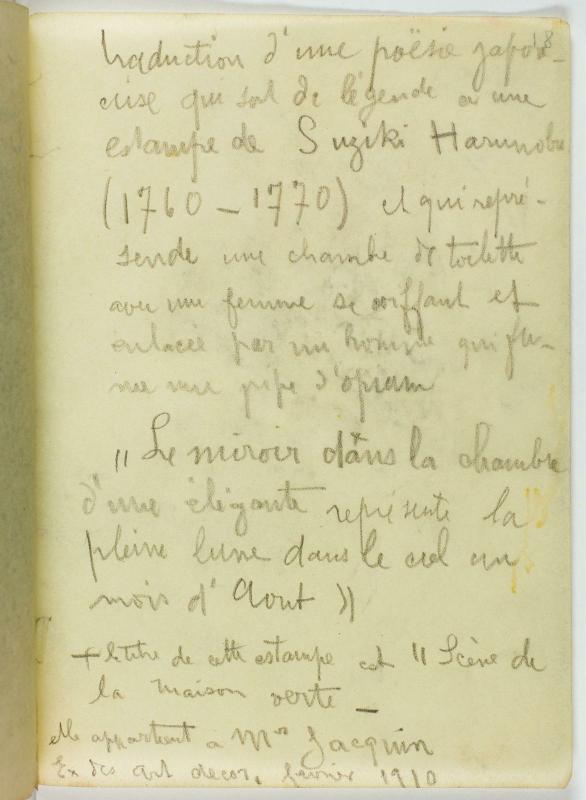 18
traduction d'une poësie japon-
aise qui sert de légende a une
estampe de Suziki Harunobu
(1760 – 1770) et qui repré-
sente une chambre de toilette
avec une femme se coiffant et
enlacée par un homme qui fu-
mee une pipe d'opium
" Le miroir dans la chambre
d'une élégante représente la
pleine lune dans le ciel un
mois d'Aout »
+ le titre de cette estampe est " Scène de
la maison verte –
elle appartient à Mr Jacquin
Ex des art decor. février 1910